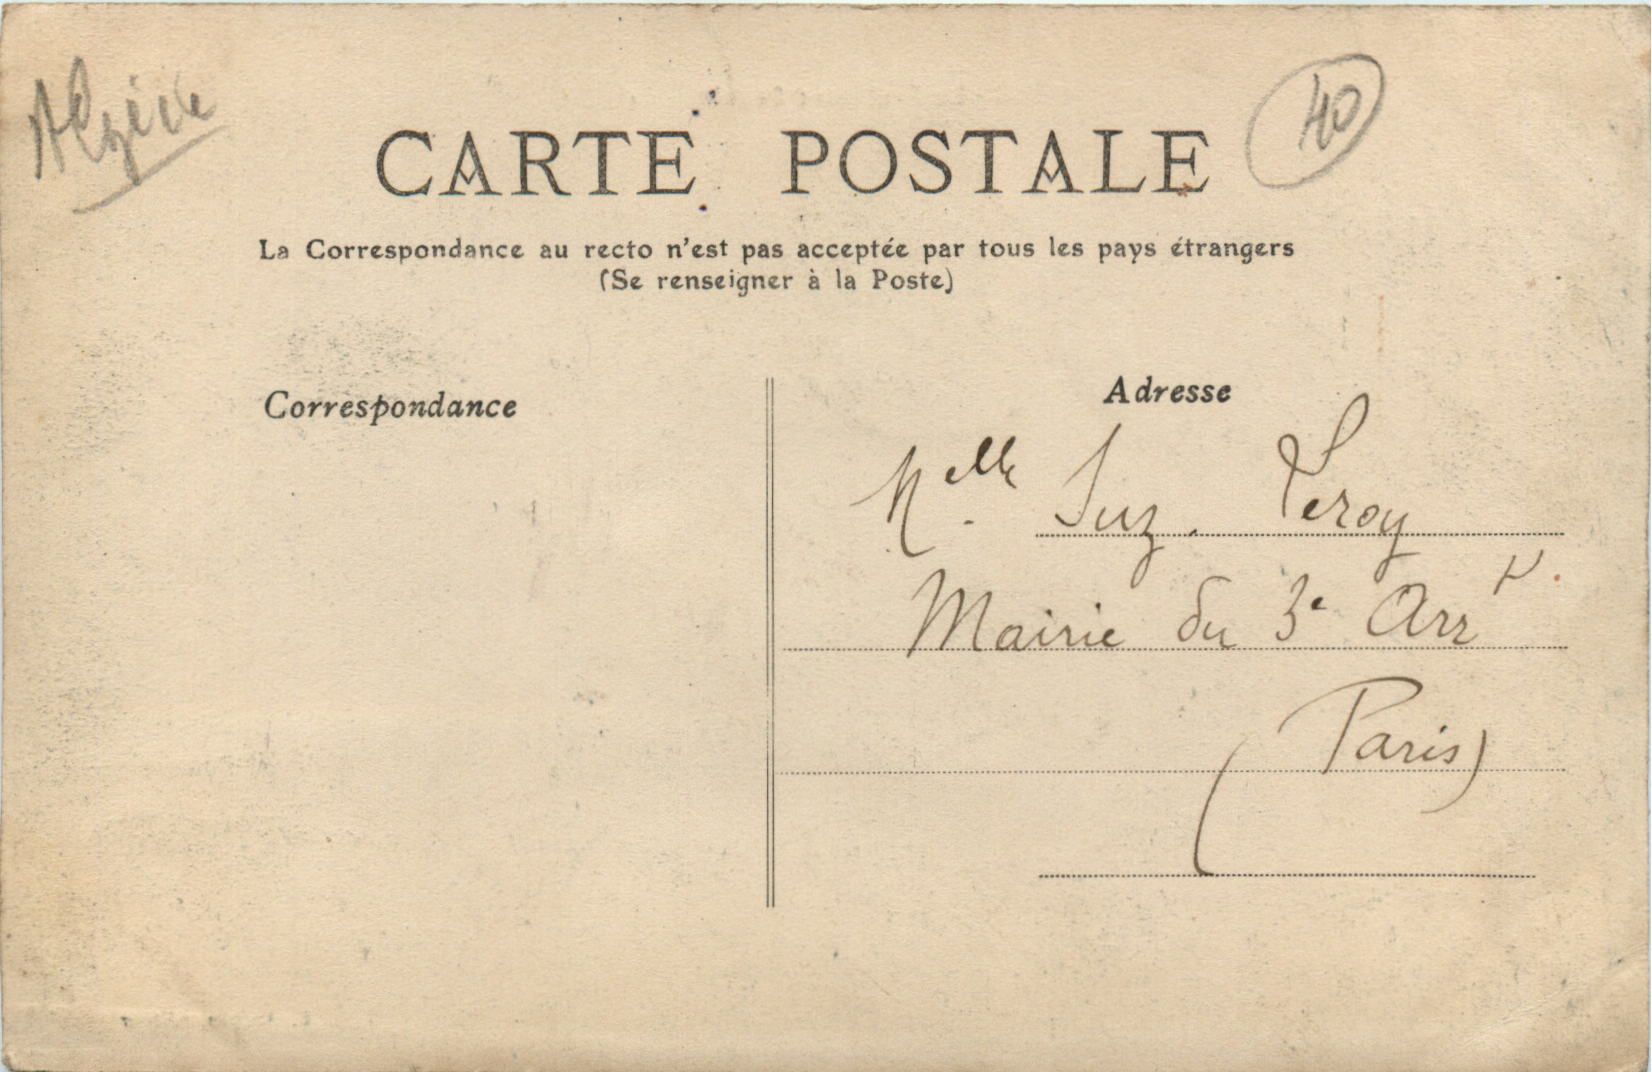 Algérie
40
CARTE POSTALE
La Correspondance au recto n'est pas acceptée par tous les pays étrangers
(Se renseigner à la Poste)
Correspondance
Adresse
Melle Suz. Leroy
Mairie du 3e Arrt.
(Paris)